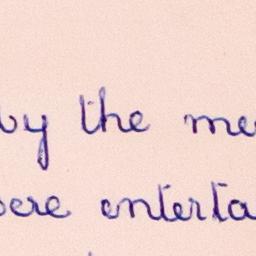 by the me
were enterta